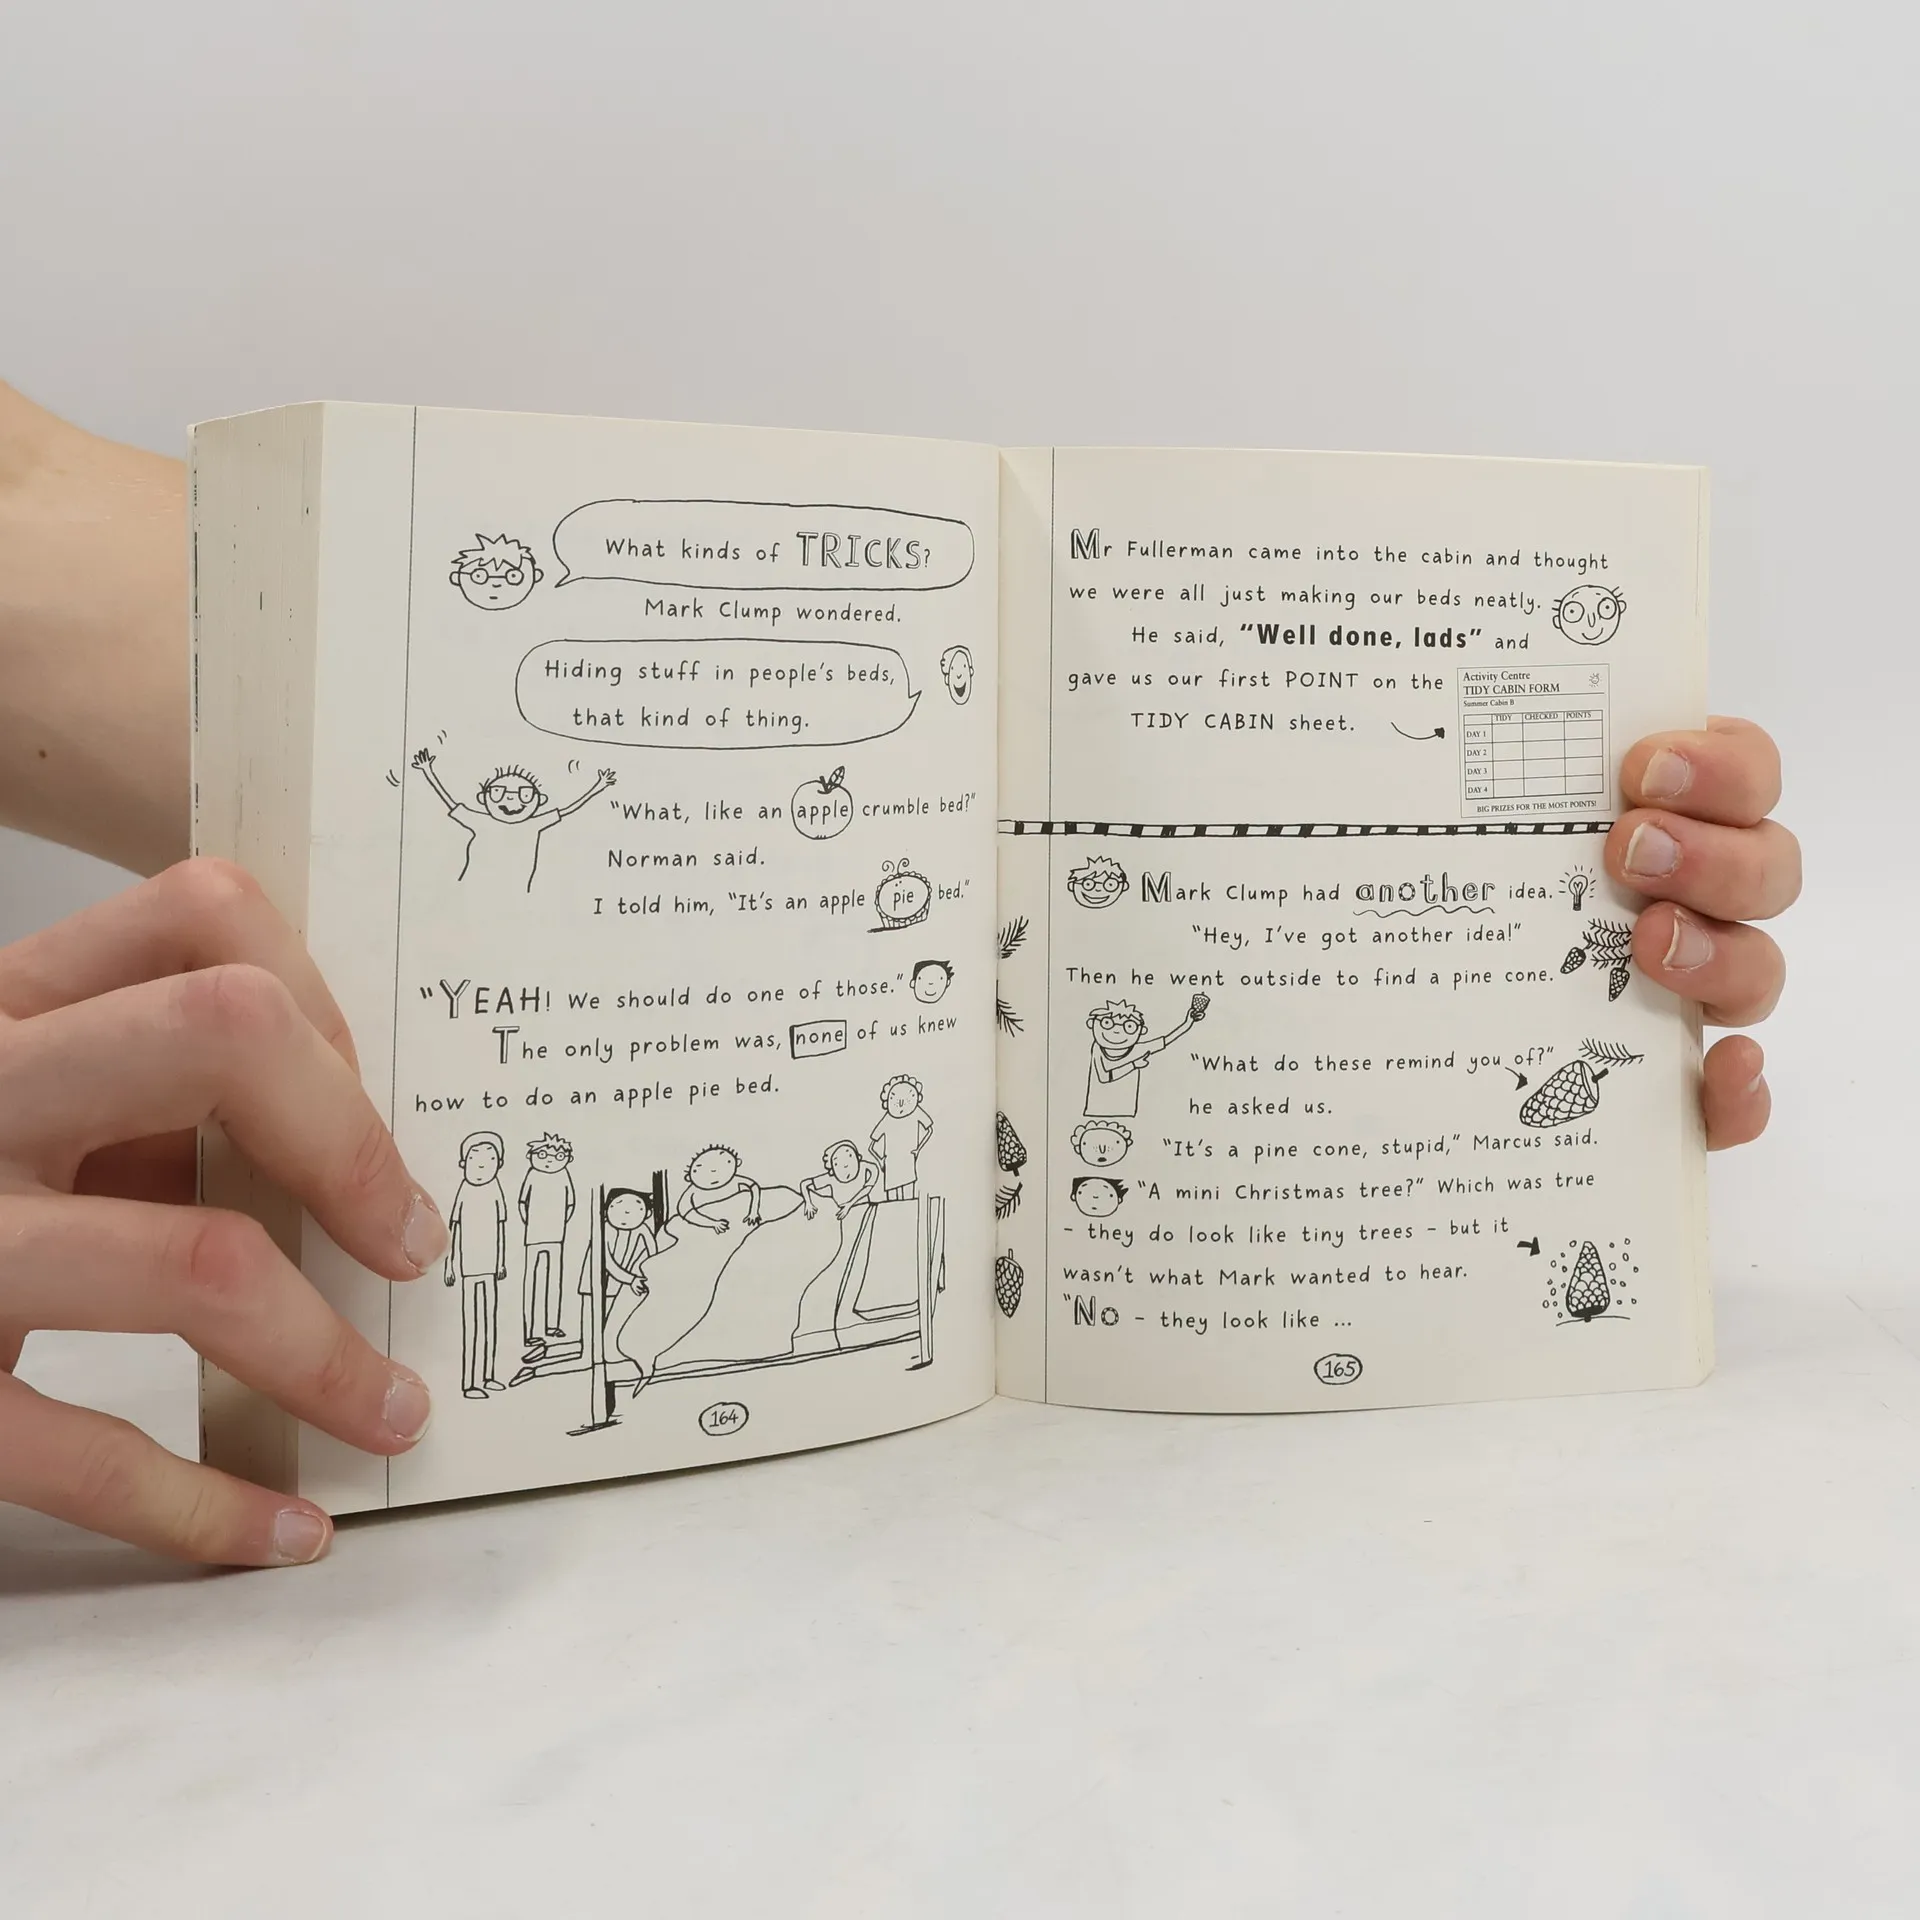 What kinds of TRICKS?
Mark Clump wondered.
Hiding stuff in people's beds,
that kind of thing.
"What, like an apple crumble bed?"
Norman said.
I told him, "It's an apple pie bed."
"YEAH! We should do one of those."
The only problem was, none of us knew
how to do an apple pie bed.
164
Mr Fullerman came into the cabin and thought
we were all just making our beds neatly.
He said, "Well done, lads" and
gave us our first POINT on the
TIDY CABIN sheet.
Activity Centre
TIDY CABIN FORM
Summer Cabin B
TIDY CHECKED POINTS
DAY 1
DAY 2
DAY 3
DAY 4
BIG PRIZES FOR THE MOST POINTS!
Mark Clump had another idea.
"Hey, I've got another idea!"
Then he went outside to find a pine cone.
"What do these remind you of?"
he asked us.
"It's a pine cone, stupid," Marcus said.
"A mini Christmas tree?" Which was true
- they do look like tiny trees - but it
wasn't what Mark wanted to hear.
"No - they look like ...
165